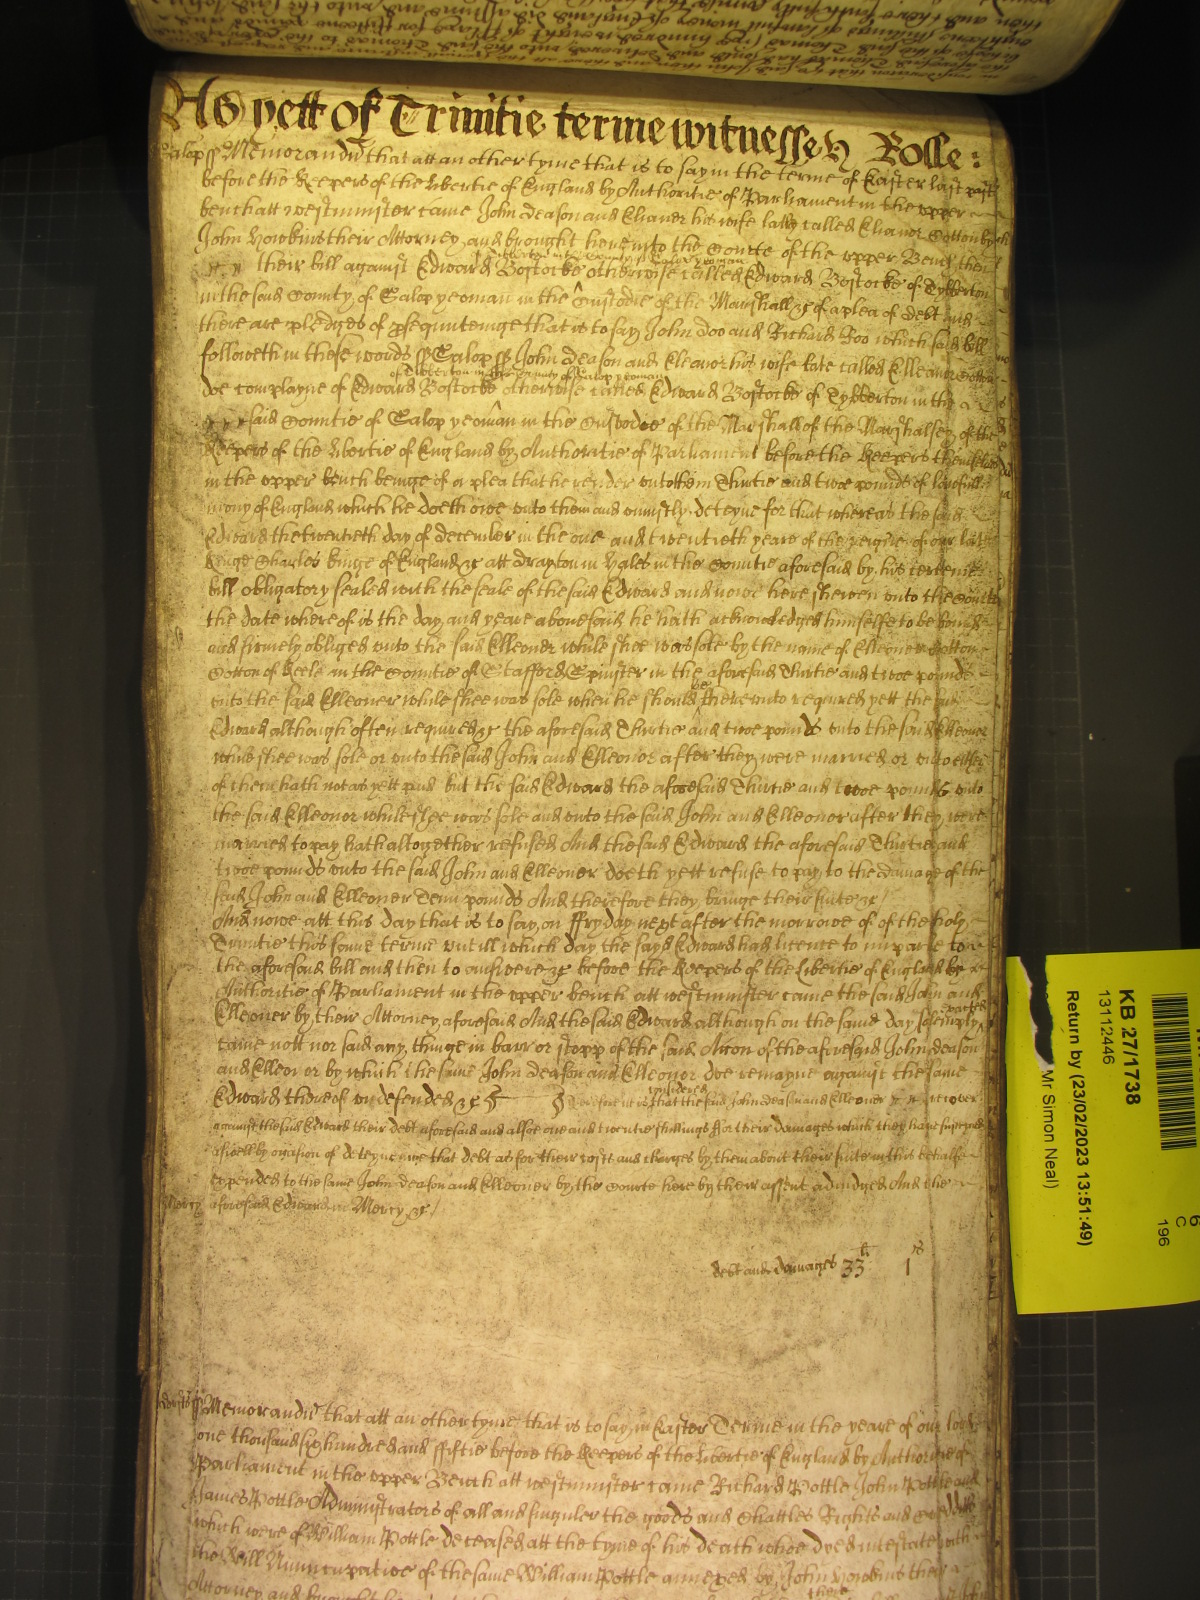 As yett of Trinitie terme witnesseth Rolle:
Salop ss Memorandū that att an other tyme that is to say in the terme of Easter last past
before the Keepers of the libertie of England by Authoritie of Parliament in the upper
bench att westminster came John deason and Elianor his wife lately called Elianor Cotton by
John Howkins their Attorney and brought here into the Courte of the upper Bench then
their bill against Edward Bostocke otherwise called Edward Bostocke of Tybberton
in the said County of Salop yeoman in the Custodie of the Marshall &c of a plea of debt and
there are pledges of prsequuteinge that is to say John Doo and Richard Roo which said bill
followeth in these words ss Salop ss John deason and Eleanor his wife late called Elleanor Cotton
of Tibberton in the County of Salop yeoman
doe complayne of Edward Bostocke otherwise called Edward Bostocke of Tybberton in the
said Countie of Salop yeoman in the Custodie of the Marshall of the Marshalsey of the
Keepers of the libertie of England by Authoratie of Parliament before the Keepers themselves
in the upper bench beinge of a plea that he render unto them Thirtie and twoe pounds of lawfull
mony of England which he doeth owe unto them and uniustly deteyne for that whereas the said
Edward the twentieth day of december in the one and twentieth yeare of the reigne of our late
kinge Charles kinge of England &c att drayton in hales in the Countie aforesaid by his certeine
bill obligatory sealed with the seale of the said Edward and nowe here shewen unto the Courte
the date whereof is the day and yeare abovesaid he hath acknowledged himselfe to be bound
and firmely obliged unto the said Elleonor while shee was sole by the name of Elleoner Cotton
Cotton of Keele in the Countie of Stafford Spinster in the aforesaid Thirtie and twoe pounds
unto the said Elleoner while shee was sole when he should be thereunto required yett the said
Edward although often required &c the aforesaid Thirtie and twoe pounds unto the said Elleonor
while shee was sole or unto the said John and Elleonor after they were married or unto either
of them hath not as yett paid but the said Edward the aforesaid Thirtie and twoe pounds unto
the said Elleonor while shee was sole and unto the said John and Elleonor after they were
married to pay hath altogether refused And the said Edward the aforesaid Thirtie and
twoe pounds unto the said John and Elleoner doeth yett refuse to pay to the damage of the
said John and Elleoner Tenn pounds And therefore they bringe their suite &c
And nowe att this day that is to say on ffryday next after the morrowe of of the holy
Trinitie this same terme untill which day the sayd Edward had licence to imparle to
the aforesaid bill and then to answere &c before the Keepers of the libertie of England by
Authoritie of Parliament in the upper bench att westminster came the said John and
Elleoner by their Attorney aforesaid And the said Edward although on the same day solemply exacted
came nott nor said any thinge in barr or stopp of the said Accon of the aforesaid John deason
and Elleonor by which the same John deason and Elleonor doe remayne against the same
Edward thereof undefended &c
Therefore it is considered that the said John deason and Elleoner recover
against the said Edward their debt aforesaid and allsoe one and twentie shillings ffor their damages which they have susteyned
aswell by occasion of deteyneinge that debt as for their costs and charges by them about their suite in this behalfe
expended to the same John deason and Elleoner by the Courte here by their assent adiudged And the
Mercy aforesaid Edward in Mercy &c
debt and damages 33li 1s
Memorandū that att an other tyme that is to say in Easter Terme in the yeare of our lord
one thousand six hundred and ffiftie before the Keepers of the libertie of England by Authoritie of
Parliament in the upper Bench att westminster came Richard Pottle John Pottle and
James Pottle Administrators of all and singuler the goods and Chattles Rights and Creddits
which were of William Pottle deceased att the tyme of his death whoe dyed intestate with
the Will Nuncupative of the same William Pottle annexed by John Howkins their
Attorney and brought here
KB 27/1738
13112446
Return by (23/02/2023 13:51:49)
Mr Simon Neal)
6
C
196